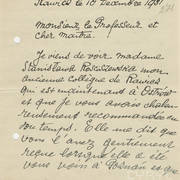 Rawicz le 10 Décembre 1931
Monsieur le Professeur et
cher maitre.
Je viens de voir madame
Stanisława mon
ancienne collègue de Rawicz
qui est maintenant à Ostrów
et que je vous avais chaleu-
reusement recommandée en
son temps. Elle me dit que
vous l'avez gentiment
reçue lorsqu'elle a été
vous voir à Poznań et que